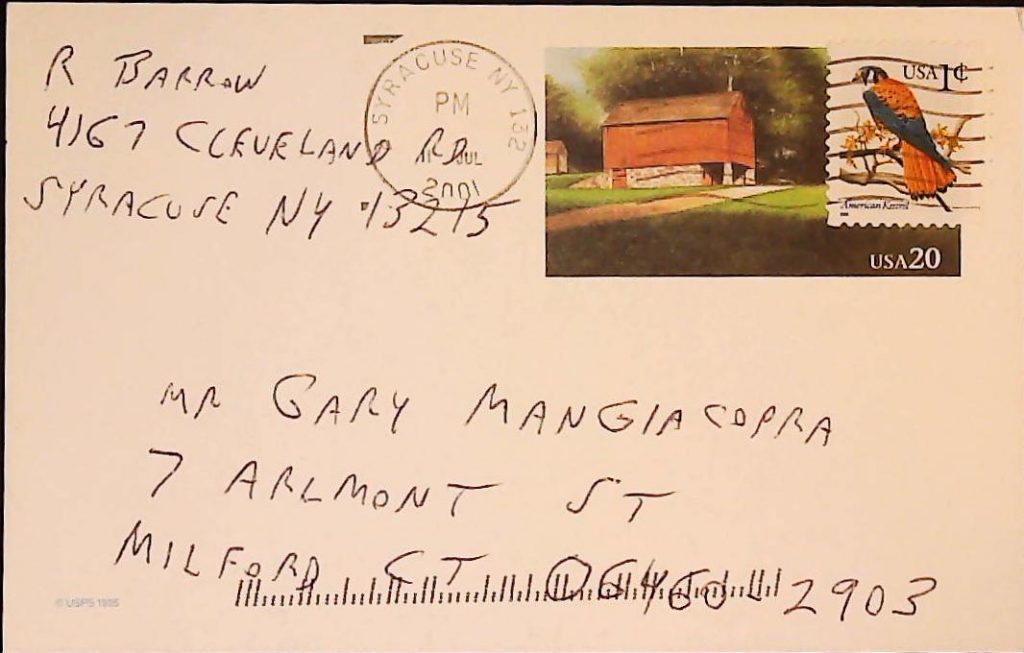 R BARROW
4167 CLEVELAND RD
SYRACUSE NY 13215
SYRACUSE NY 132
PM
JUL
2001
USA 1¢
American Kestrel
USA 20
MR GARY MANGIACOPRA
7 ARLMONT ST
MILFORD CT 06460-2903
© USPS 1995